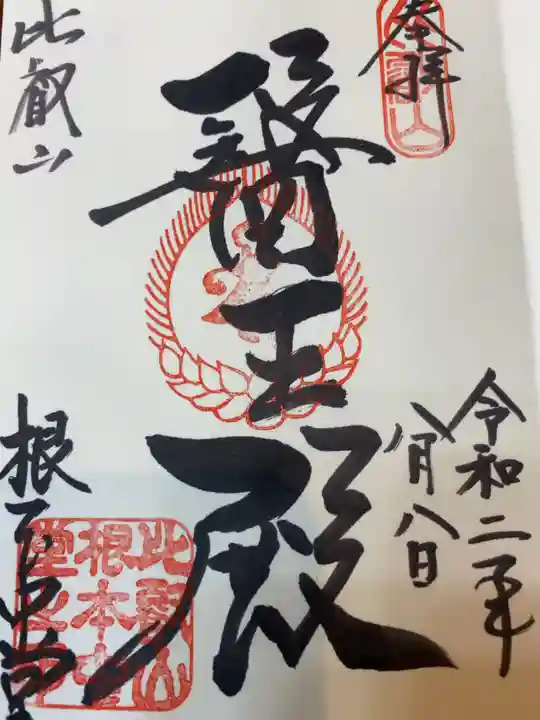 奉拝
令和二年
八月八日
醫王殿
比叡山
根本中堂
比叡山
根本中
堂之印